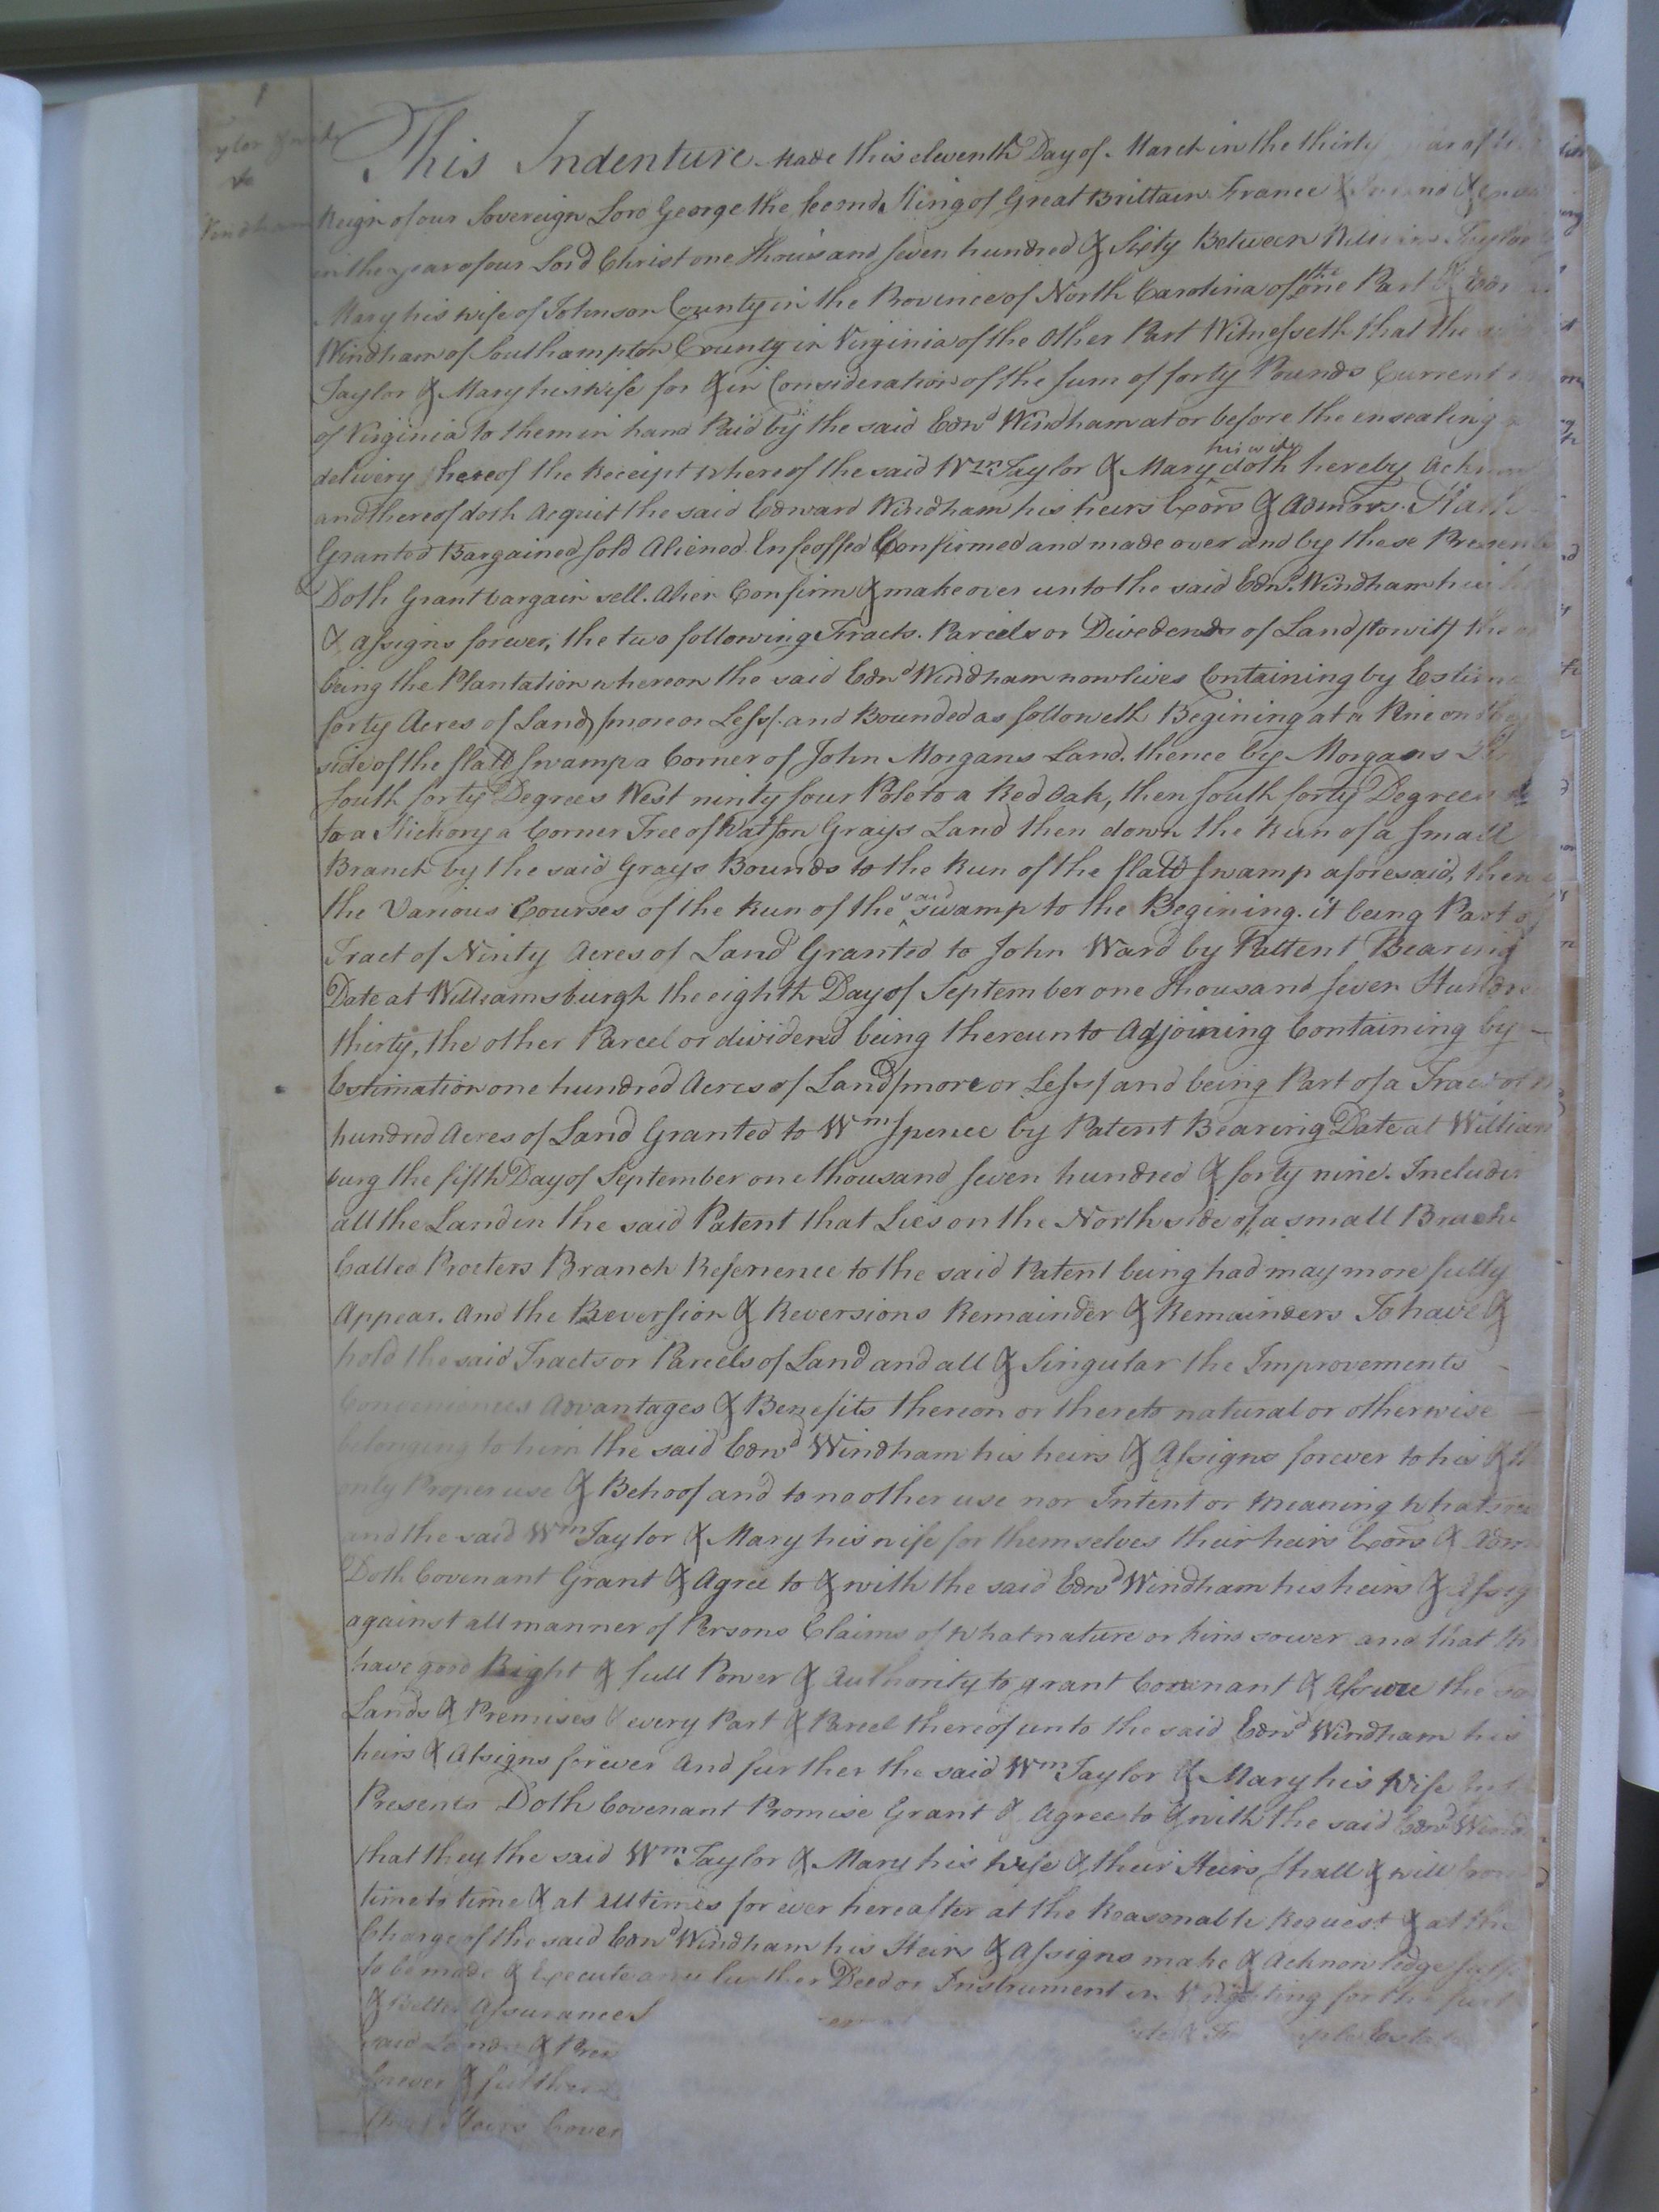 1
ylor & wife
to
Windham
This Indenture Made this eleventh Day of March in the thirty ear of
Reign of our Sovereign Lord George the Second King of Great Brittain France & Ireland &
in the year of our Lord Christ one thousand seven hundred & Sixty Between William Taylor
Mary his wife of Johnson County in the Province of North Carolina of the one Part & Edw
Windham of Southampton County in Virginia of the Other Part Witnesseth that the
Taylor & Mary his wife for & in Consideration of the sum of forty Pounds Current
of Virginia to them in hand Paid by the said Edwd Windham at or before the ensealing
delivery hereof the Receipt whereof the said Wm Taylor & Mary his wife doth hereby Ackn
and thereof doth Acquit the said Edward Windham his heirs Exors & Admrs. Hath
Granted Bargained sold Aliened Enfeoffed Confirmed and made over and by these Presents
Doth Grant bargain sell. Alien Confirm & make over unto the said Edwd Windham his
& assigns forever, the two following Tracts. Parcels or Devedends of Land /towit/ the
being the Plantation whereon the said Edwd Windham now lives Containing by Estim
forty Acres of Land /more or Less/ and Bounded as followeth Begining at a Pine on the
side of the flatt swamp a Corner of John Morgans Land, thence by Morgans
South forty Degrees West ninty four Pole to a Red Oak, then South forty Degrees
to a Hickory a Corner Tree of Watson Grays Land then down the Run of a small
Branch by the said Grays Bounds to the Run of the flatt swamp aforesaid, then
the Various Courses of the Run of the said swamp to the Begining. it being Part of
Tract of Ninty Acres of Land Granted to John Ward by Pattent Bearing
Date at Williamsburgh the eighth Day of September one thousand seven Hundre
thirty, the other Parcel or dividend being thereunto Adjoining Containing by
Estimation one hundred Acres of Land /more or Less/ and being Part of a Tract of
hundred Acres of Land Granted to Wm Spence by Patent Bearing Date at William
burg the fifth Day of September one thousand seven hundred & forty nine. Includi
all the Land in the said Patent that Lies on the North side of a small Brache
Called Procters Branch Refenence to the said Patent being had may more fully
Appear. And the Reversion & Reversions Remainder & Remainders To have &
hold the said Tracts or Parcels of Land and all & Singular the Improvements
Conveniences Advantages & Benefits thereon or thereto natural or otherwise
belonging to him the said Edwd Windham his heirs & Assigns forever to his &
only Proper use & Behoof and to no other use nor Intent or meaning whatsoe
and the said Wm Taylor & Mary his wife for themselves their heirs Exors & Adm
Doth Covenant Grant & Agree to & with the said Edwd Windham his heirs & Assig
against all manner of Persons Claims of what nature or kind sower and that th
have good Right & full Power & Authority to grant Covenant & Assure the
Lands & Premises & every Part & Parcel thereof unto the said Edwd Windham his
heirs & Assigns forever And further the said Wm Taylor & Mary his Wife by
Presents Doth Covenant Promise Grant & Agree to & with the said Edwd Wind
that they the said Wm Taylor & Mary his wife & their Heirs shall & will from
time to time & at all times for ever hereafter at the Reasonable Request & at the
Charge of the said Edwd Windham his Heirs & Assigns make & Acknowledge
to be made & Execute any further Deed or Instrument in for the
& Better Assurances
said Lands & Prem
forever & further
their Heirs Coven